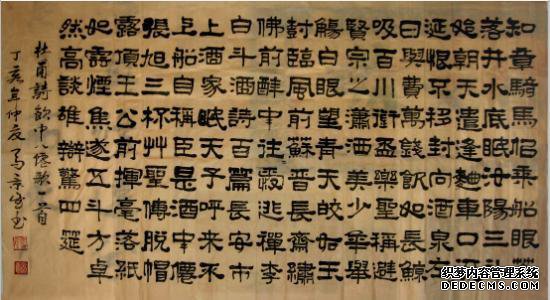 知章騎馬侣乘船眼花
落井水底眠汝陽三斗
始朝天道逢麴車口流
涎恨不移封向酒泉左
日興費萬錢飲如長鯨
吸百川銜盃樂聖稱避
賢宗之瀟洒美少年舉
觴白眼望青天皎如玉
樹臨風前蘇晉長齋繡
佛前醉中往往愛逃禪李
白斗酒詩百篇長安市
上酒家眠天子呼來不
上船自稱臣是酒中僊
張旭三杯艸聖傳脱帽
露頂王公前揮毫落紙
如雲煙焦遂五斗方卓
然高談雄辯驚四筵
杜甫詩飲中八僊歌一首
丁亥年仲夏